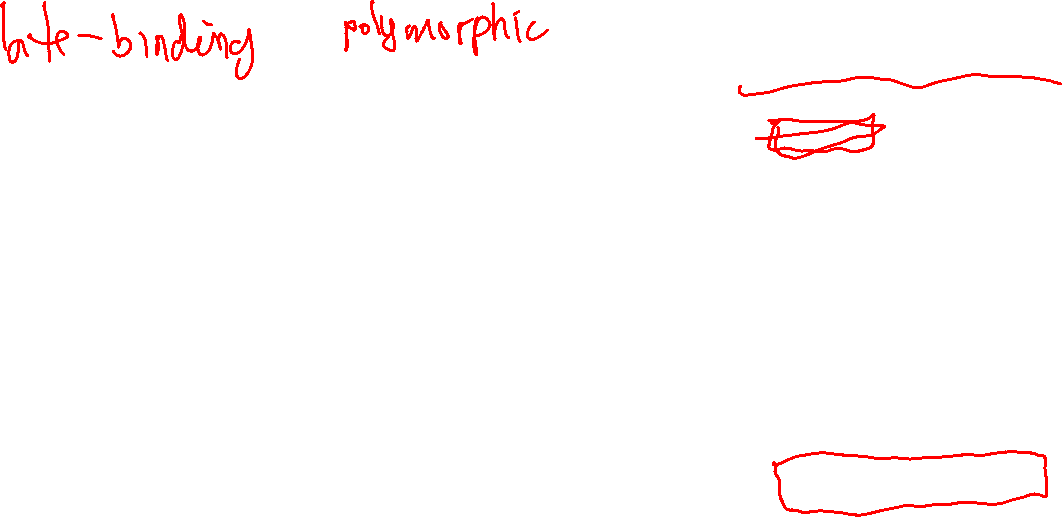 late-binding polymorphic